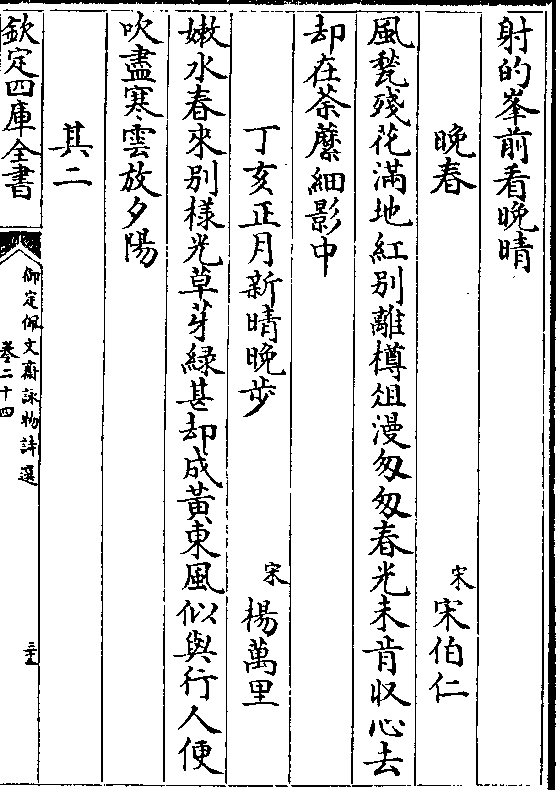 射的峯前看晚晴
晚春　宋 宋伯仁
風甃殘花滿地紅別離樽俎漫匆匆春光未肯収心去
却在荼縻細影中
丁亥正月新晴晚步　宋 楊萬里
嫩水春來別様光草芽綠甚却成黃東風似與行人便
吹盡寒雲放夕陽
其二
欽定四庫全書
御定佩文齋詠物詩選
卷二十四